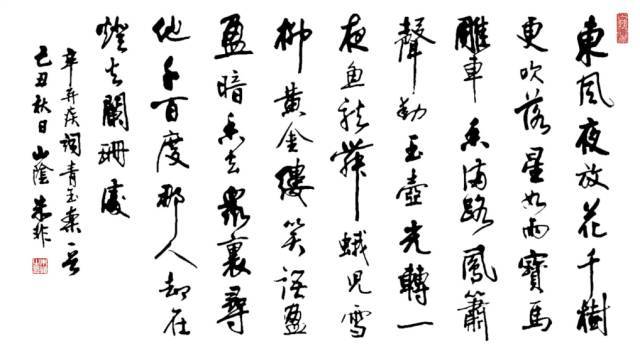 東風夜放花千樹
更吹落星如雨寶馬
雕車香滿路鳳簫
聲動玉壺光轉一
夜魚龍舞蛾兒雪
柳黃金縷笑語盈
盈暗香去眾裏尋
他千百度那人却在
燈火闌珊處
辛弃疾詞青玉案一首
己丑秋日山陰朱